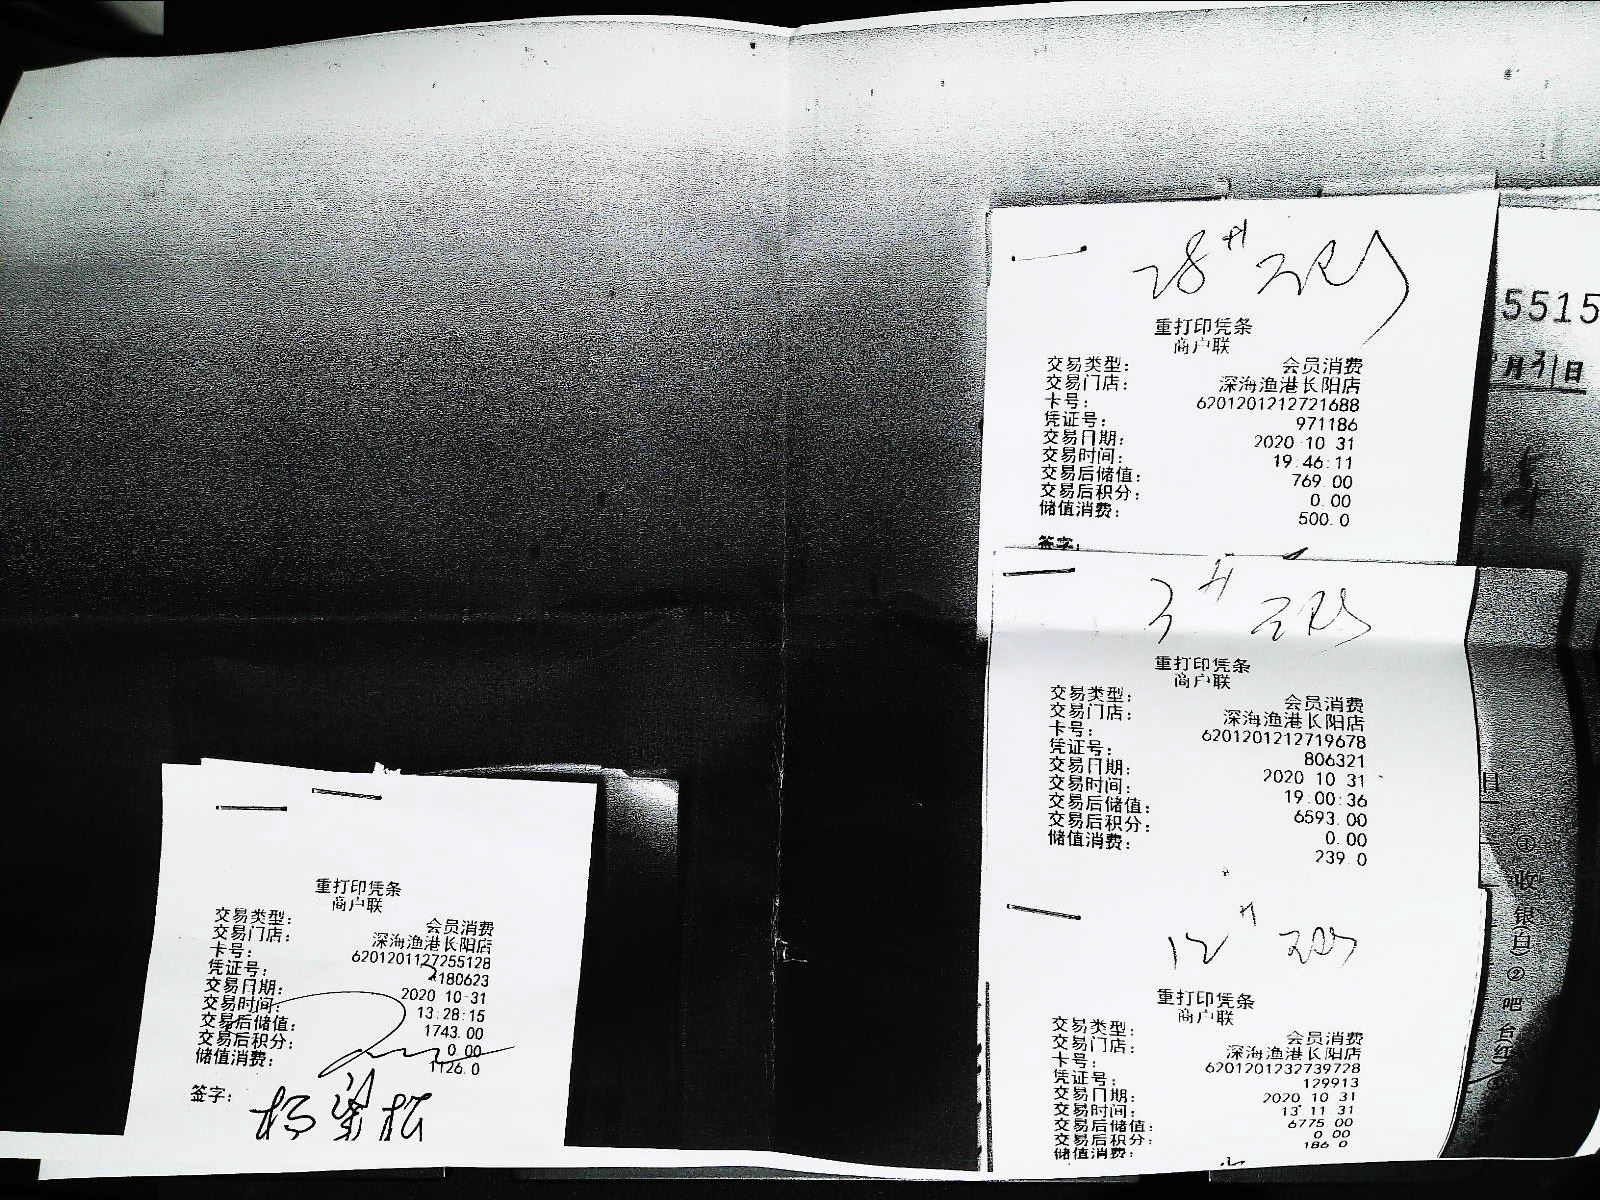 28#
重打印凭条
商户联
交易类型: 会员消费
交易门店: 深海渔港长阳店
卡号: 6201201212721688
凭证号: 971186
交易日期: 2020 10 31
交易时间: 19:46:11
交易后储值: 769.00
交易后积分: 0.00
储值消费: 500.0
签字:
5515
月31日
3#
重打印凭条
商户联
交易类型: 会员消费
交易门店: 深海渔港长阳店
卡号: 6201201212719678
凭证号: 806321
交易日期: 2020 10 31
交易时间: 19:00:36
交易后储值: 6593.00
交易后积分: 0.00
储值消费: 239.0
12#
重打印凭条
商户联
交易类型: 会员消费
交易门店: 深海渔港长阳店
卡号: 6201201232739728
凭证号: 129913
交易日期: 2020 10 31
交易时间: 13 11 31
交易后储值: 6775.00
交易后积分: 0 00
储值消费: 186 0
①收银(白)②吧台(红)
重打印凭条
商户联
交易类型: 会员消费
交易门店: 深海渔港长阳店
卡号: 6201201127255128
凭证号: 180623
交易日期: 2020 10-31
交易时间: 13:28:15
交易后储值: 1743.00
交易后积分: 0.00
储值消费: 1126.0
签字: 杨梁松